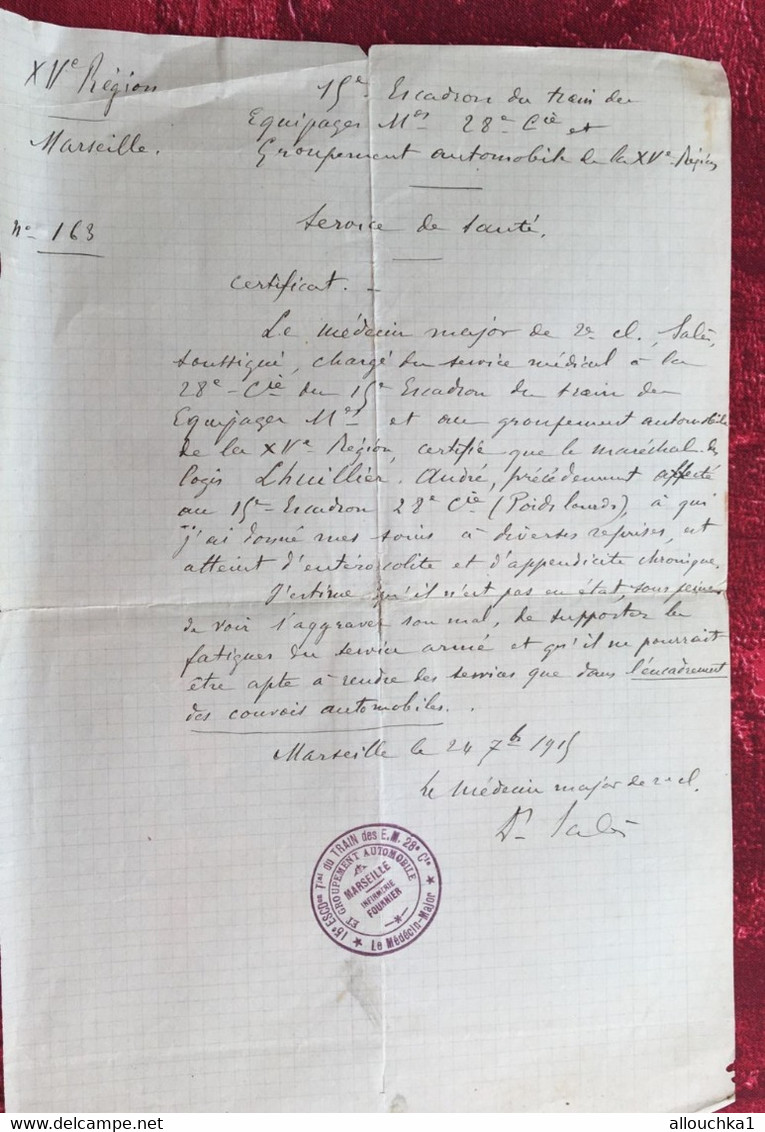 XVe Région
Marseille.
15e Escadron du train des
Equipages Mres 28e Cie et
Groupement automobile de la XVe Région
No 163
Service de Santé.
Certificat. -
Le médecin major de 2e cl., Salès,
soussigné, chargé du service médical à la
28e Cie du 15e Escadron du train des
Equipages Mres et au groupement automobile
de la XVe Région, certifie que le maréchal des
logis Lhuillier, André, précédemment affecté
au 15e Escadron 28e Cie (Poids lourds), à qui
j'ai donné mes soins à diverses reprises, est
atteint d'entérocolite et d'appendicite chronique.
J'estime qu'il n'est pas en état, sous peine
de voir s'aggraver son mal, de supporter les
fatigues du service armé et qu'il ne pourrait
être apte à rendre des services que dans l'encadrement
des convois automobiles.
Marseille le 24 7bre 1915
Le Médecin major de 2e cl.
Dr Salès
15e ESCDon Trial DU TRAIN des E.M. 28e Cie
ET GROUPEMENT AUTOMOBILE
MARSEILLE
INFIRMERIE
FOURNIER
Le Médecin-Major
Delcampe.net
allouchka1